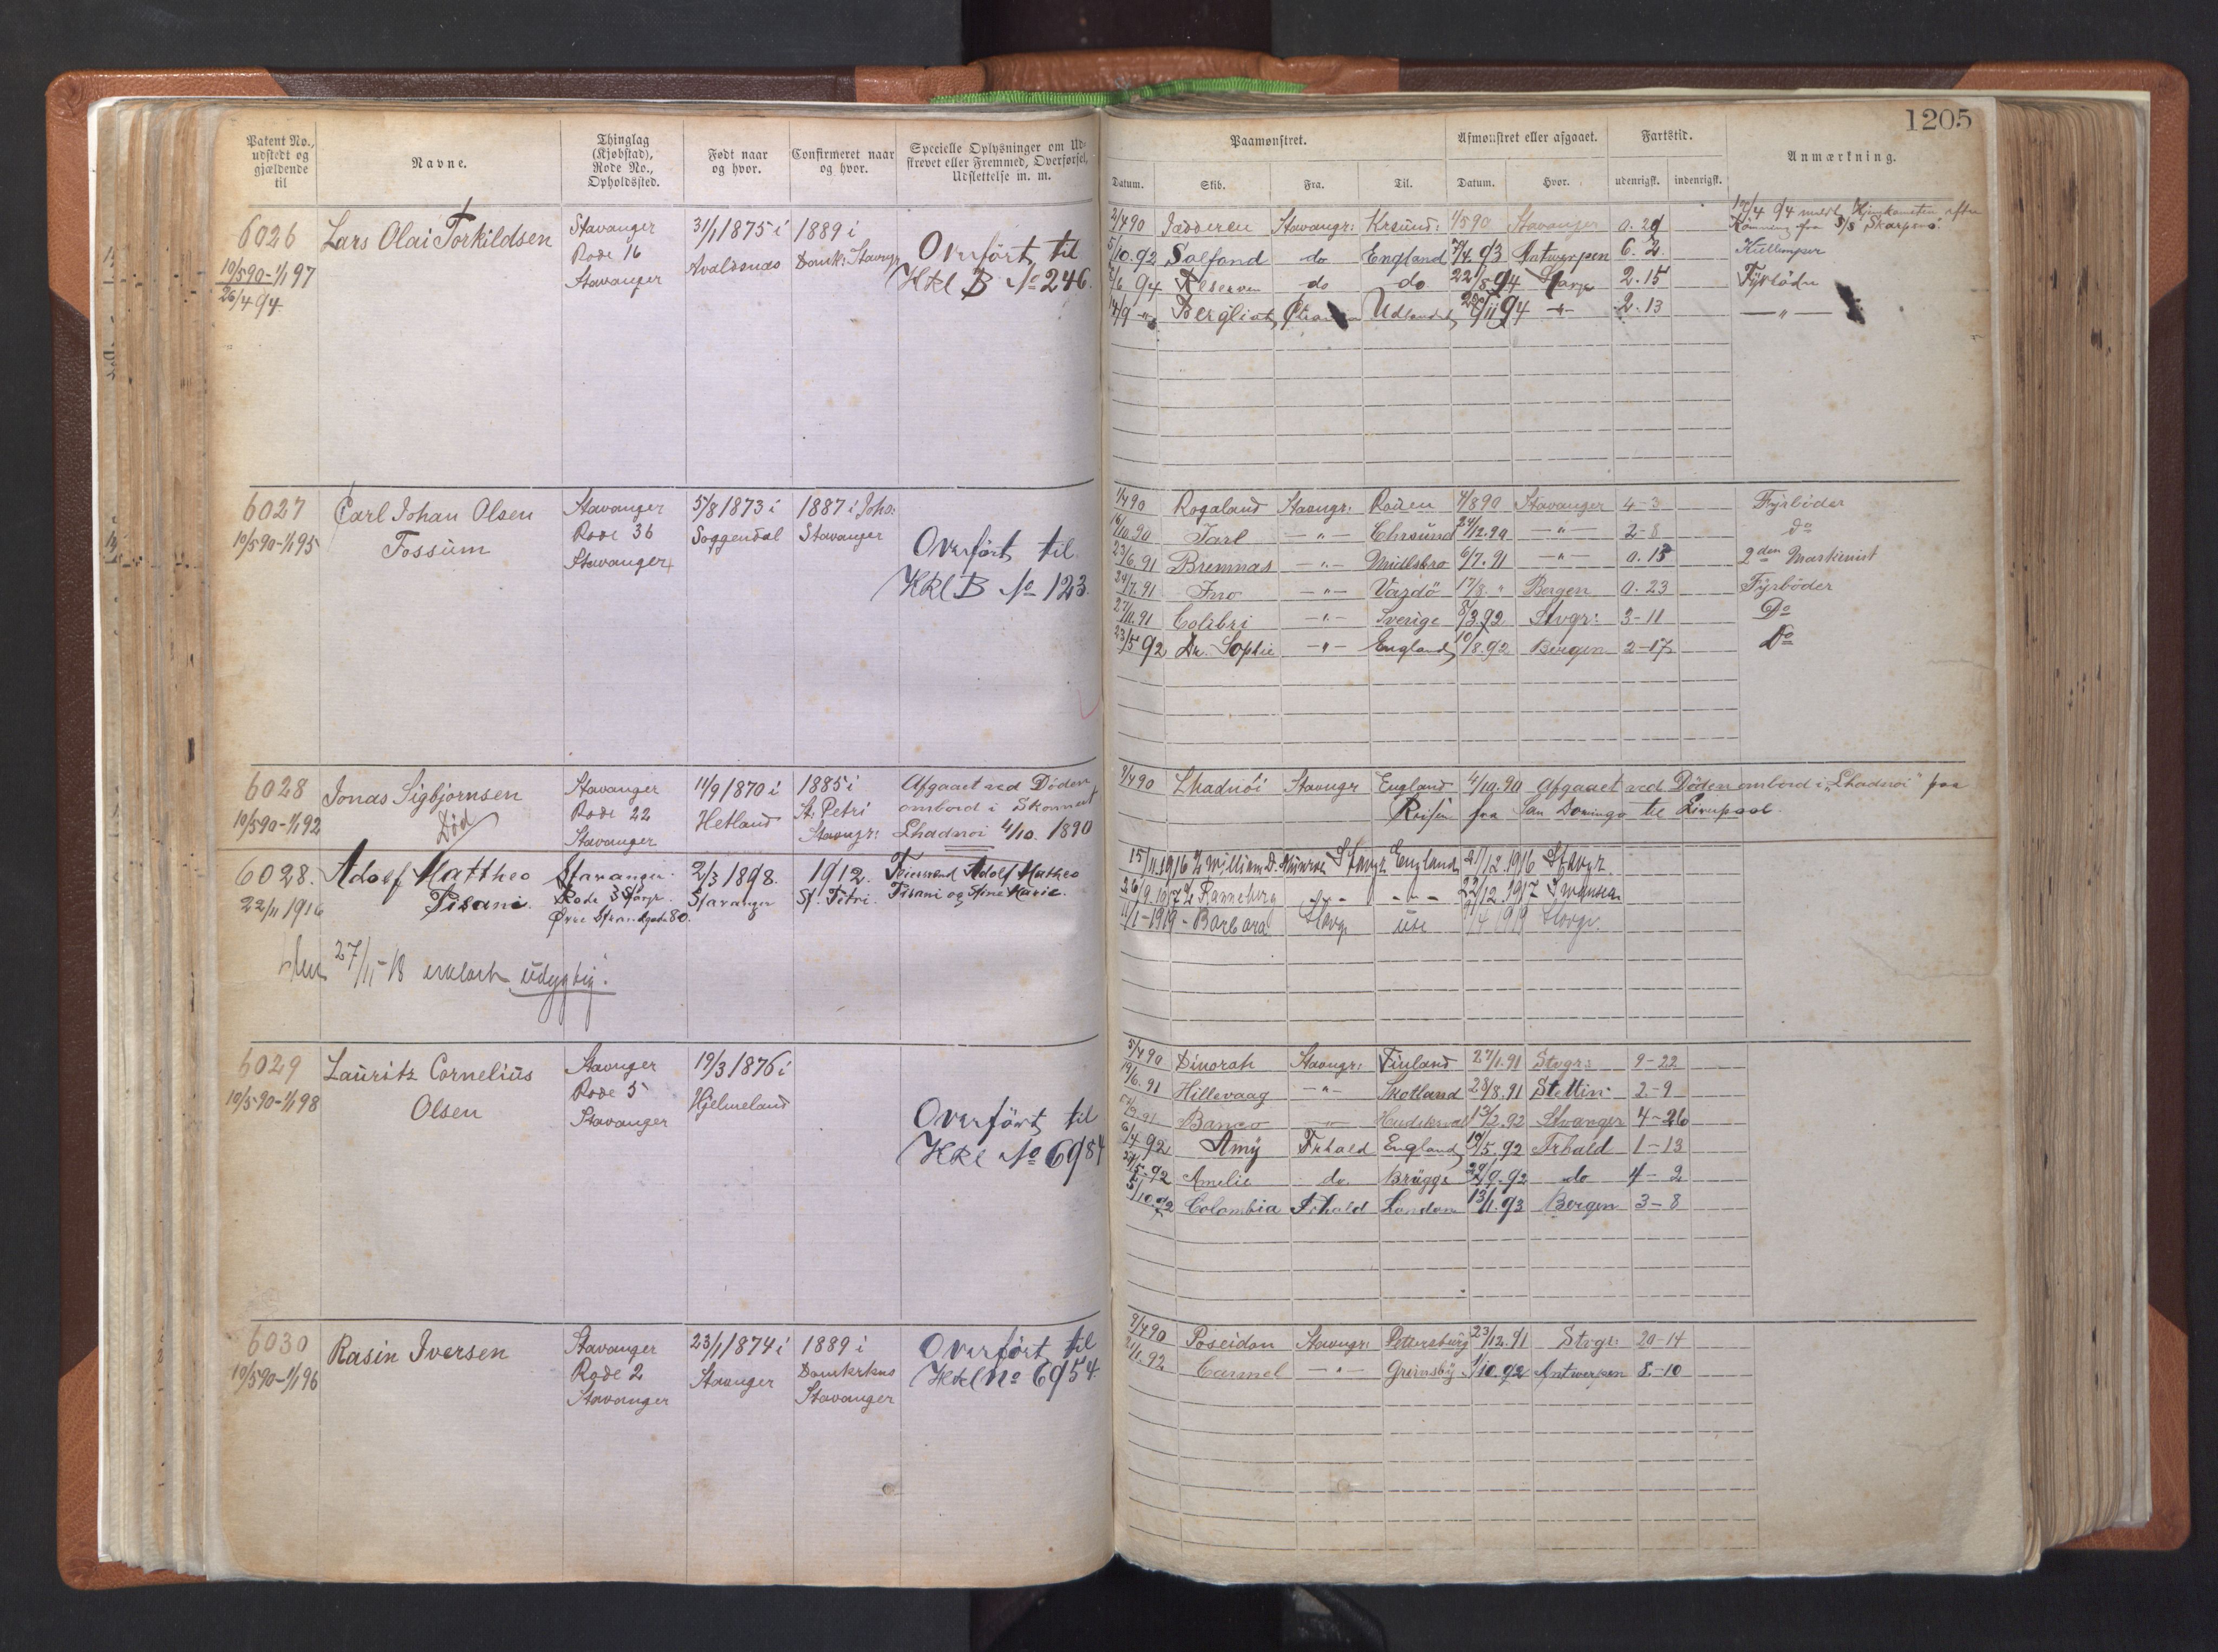 1205
Patent No., udstedt og gjældende til
Navne.
Thinglag (Kjøbstad), Rode No., Opholdssted.
Født naar og hvor.
Confirmeret naar og hvor.
Specielle Oplysninger om Udskrevet eller Fremmed, Overførsel, Udslettelse m. m.
Paamønstret.
Afmønstret eller afgaaet.
Fartstid.
Anmærkning.
Datum. Skib. Fra. Til. Datum. Hvor. udenrigsk. indenrigsk.
6026 Lars Olai Torkildsen Stavanger 31/1 1875 i 1889 i
10/5 90-1/1 97 Rode 16 Avaldsnæs Domk: Stavngr
26/4 94 Stavanger
Overført til
HKl B No 246.
2/4 90 Jædderen Stavangr: Krsund: 1/5 90 Stavanger 0.29
5/10.92 Salfond do England 7/4.93 Antwerpen 6.2
94 do do 22/8 94 2.15 Fyrböder
Bergliot Udlandet 94 -"- 2.13 -"-
6027 Carl Johan Olsen Stavanger 5/8 1873 i 1887 i Joh:
10/5 90-1/1 95 Fossum Rode 36 Soggendal Stavanger
Stavanger
Overført til
HKl B No 123.
1/4 90 Rogaland Stavngr: Rouen 4/8 90 Stavanger 4-3 Fyrböder
16/10.90 Jarl -"- Chrsund 24/12.90 -"- 2-8 do
23/6.91 Bremnæs -"- 6/7.91 -"- 0.13 2den Maskinist
24/7.91 -"- 17/8 " Bergen 0.23 Fyrböder
27/11.91 Colibri -"- Sverige 8/3.92 Stvgr: 3-11 Do
23/5 92 Dr. Sophie -"- England 10/8.92 Bergen 2-17 Do
6028 Jonas Sigbjørnsen Stavanger 11/9 1870 i 1885 i Afgaaet ved Döden
10/5 90-1/1 92 Död Rode 22 Hetland St. Petri ombord i Skonnert
Stavanger Stavngr: Lhadnöi 4/10. 1890
9/4 90 Lhadnöi Stavngr England 4/10.90 Afgaaet ved Döden ombord i "Lhadnöi" paa
Reisen fra San Domingo til Liverpool.
6028. Adolf Mattheo Stavanger. 2/3 1898. 1912. Adolf Matheo
22/11 1916 Pisani. Rode 3 Stvgr. Stavanger St. Petri. Pisani og Ane Marie.
Øvre Strandgade 80.
27/11-18 erklært udygtig.
15/11.1916 William D. Munroe Stavgr. England 21/12.1916 Stavgr.
26/9.1917 Ranneborg -"- -"- 22/12.1917 Swansea
11/1-1919 - Barbara Stavg. 1919 Stavgr.
6029 Lauritz Cornelius Stavnger 19/3 1876 i
10/5 90-1/1 98 Olsen Rode 5 Hjelmeland
Stavanger
Overført til
HKl No 6984
5/4 90 Dinorah Stavngr: Finland 27/1.91 Stvgr: 9-22
19/6.91 Hillevaag -"- Skotland 28/8.91 Stettin 2-9
Banco -"- Hudiksval 13/2.92 Stvanger 4-26
6/4 92 Amy Frhald England 19/5.92 Frhald 1-13
92 Amelie do. Brügge 29/9.92 do 4-2
5/10.92 Colombia Frhald London 13/1.93 Bergen 3-8
6030 Rasin Iversen Stavanger 23/1 1874 i 1889 i
10/5 90-1/1 96 Rode 2 Stavnger Domkirkens
Stavanger Stavanger
Overført til
HKl No 6954.
9/4 90 Poseidon Stavngr: Petersburg 23/12.91 Stvgr: 20-14
92 Carmel -"- Grimsby 1/10.92 Antwerpen 8-10